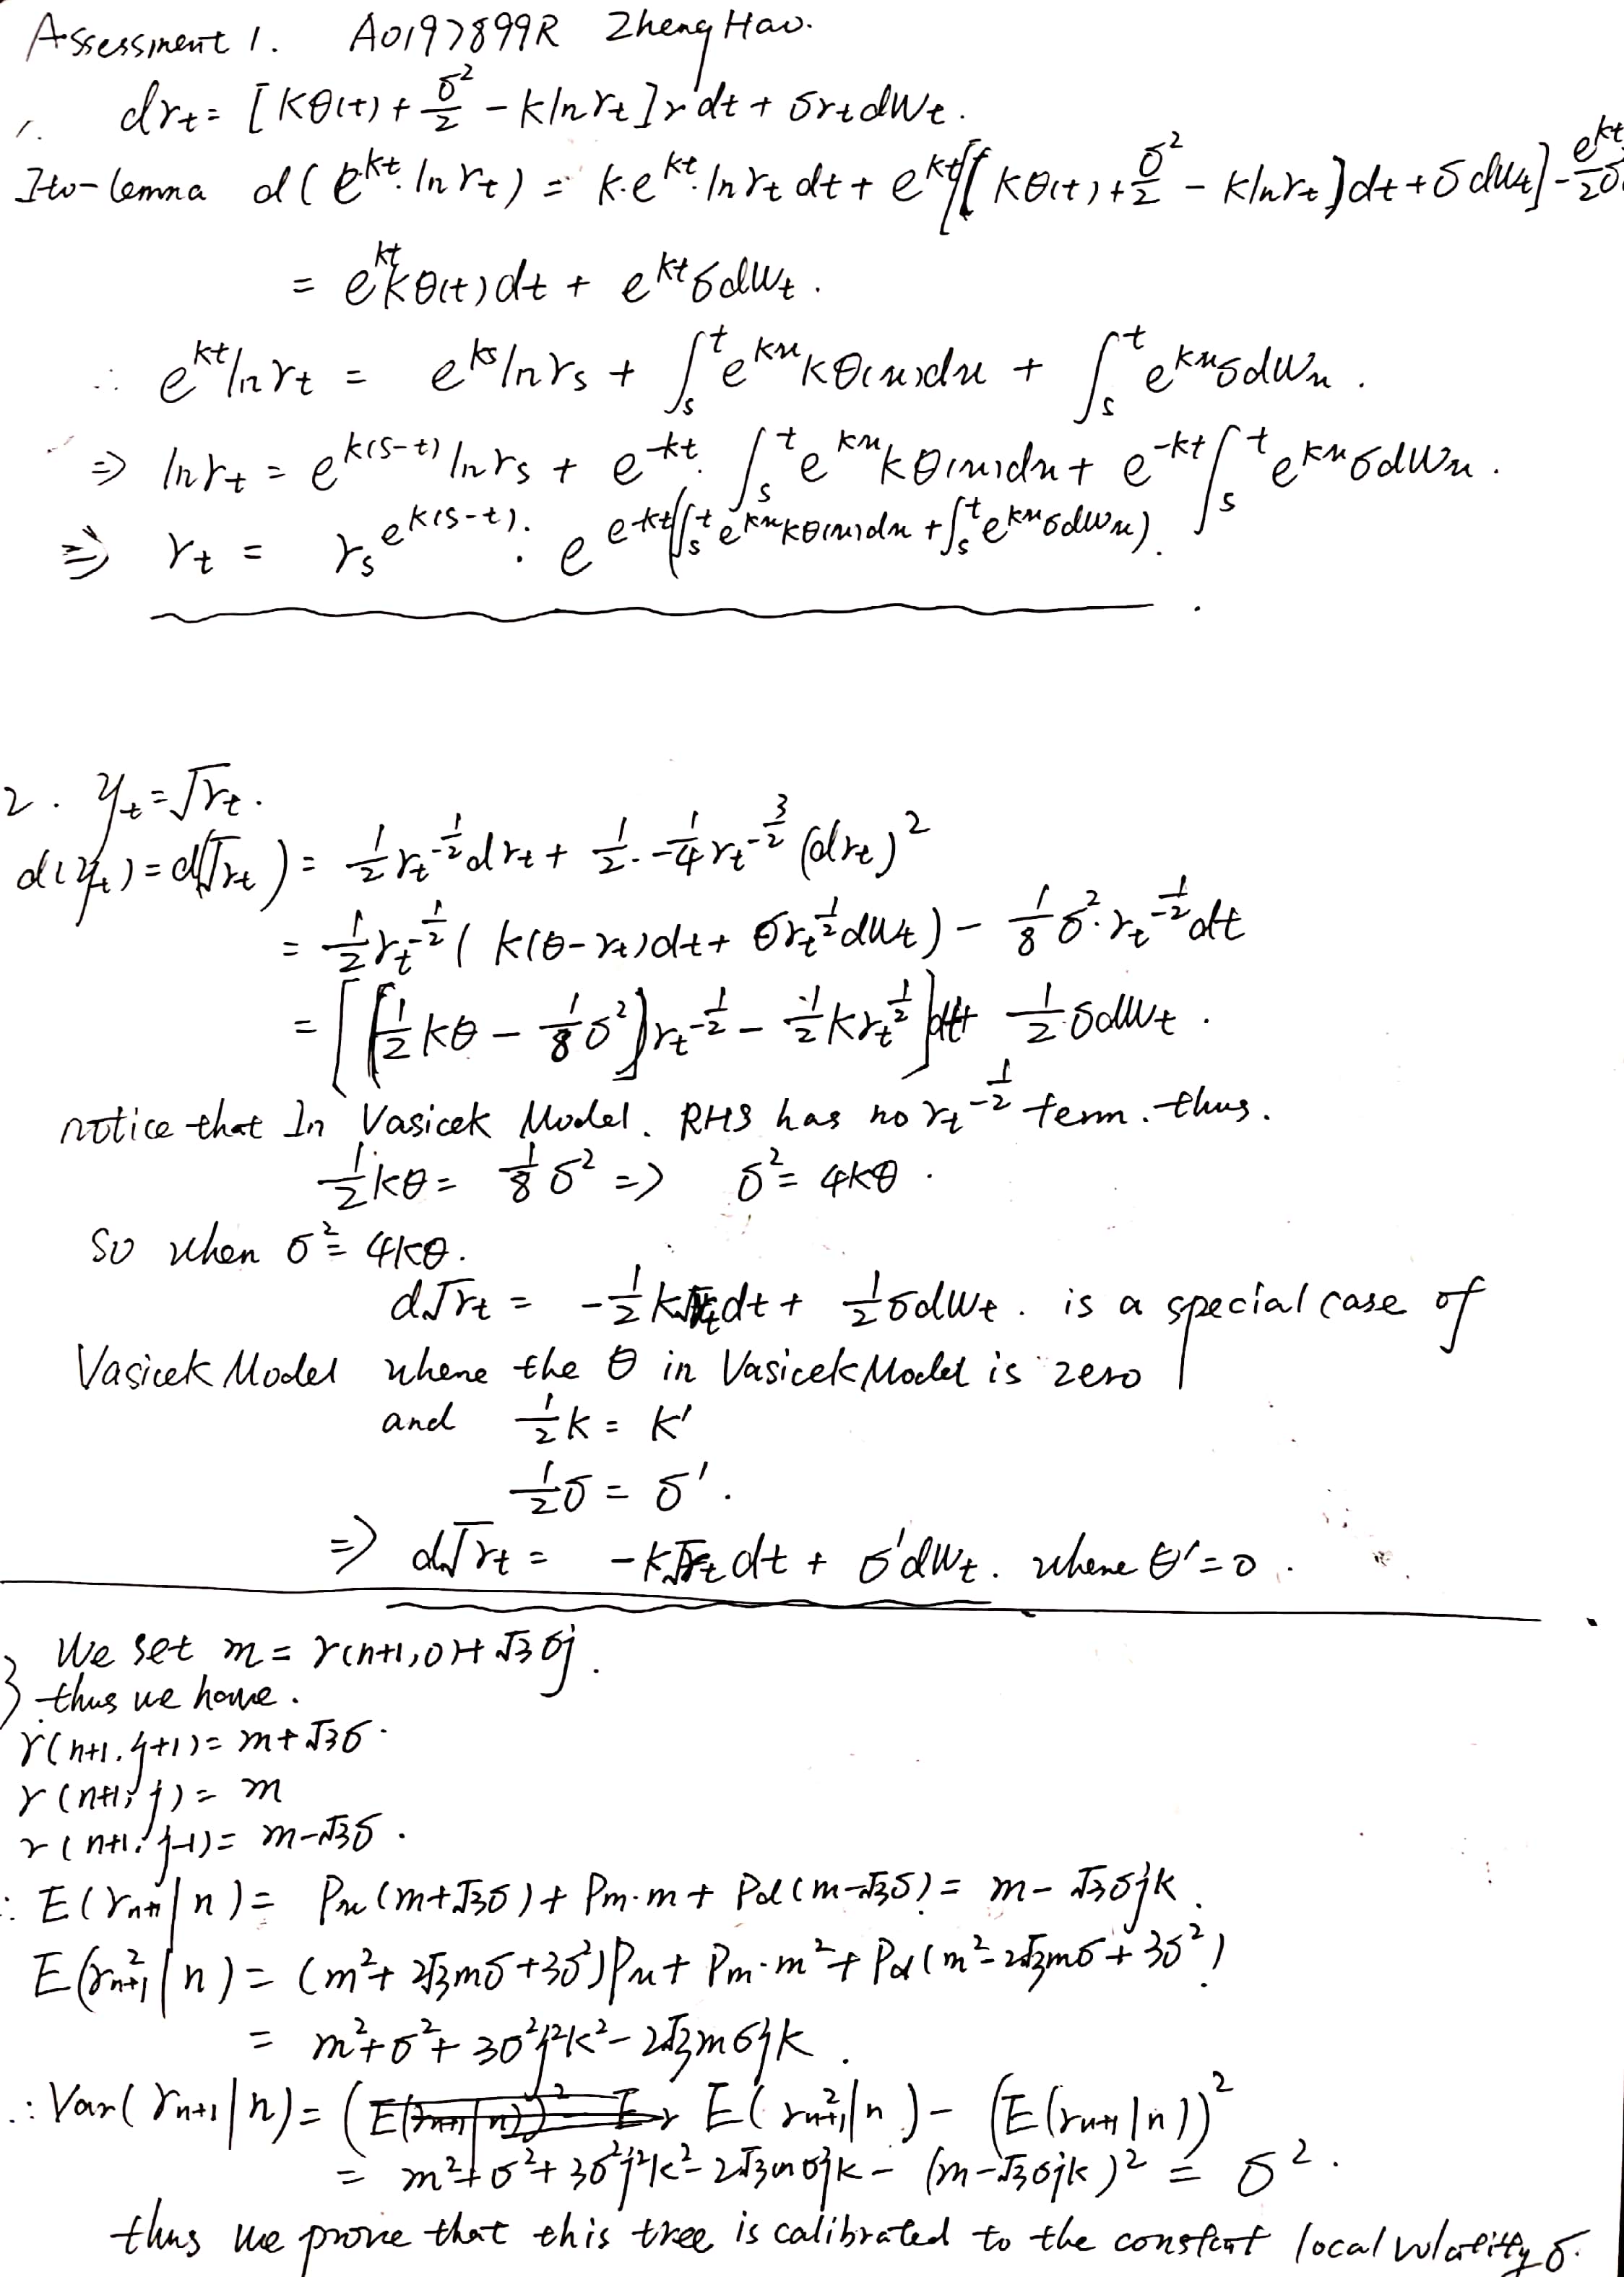 Assessment 1. A0197899R Zheng Hao.
1. drt = [Kθ(t) + σ²/2 - k ln rt] r dt + σ rt dWt.
Ito-lemma d(e^kt · ln rt) = k·e^kt · ln rt dt + e^kt [[kθ(t) + σ²/2 - k ln rt] dt + σ dWt] - e^kt/2 σ
= e^kt kθ(t) dt + e^kt σ dWt.
∴ e^kt ln rt = e^ks ln rs + ∫_s^t e^ku kθ(u) du + ∫_s^t e^ku σ dWu.
⇒ ln rt = e^k(s-t) ln rs + e^-kt · ∫_s^t e^ku kθ(u) du + e^-kt ∫_s^t e^ku σ dWu.
⇒ rt = rs^e^k(s-t) · e^e^-kt (∫_s^t e^ku kθ(u) du + ∫_s^t e^ku σ dWu).
2. yt = √rt.
d(yt) = d(√rt) = 1/2 rt^-1/2 drt + 1/2 · -1/4 rt^-3/2 (drt)²
= 1/2 rt^-1/2 (k(θ-rt)dt + σ rt^1/2 dWt) - 1/8 σ² · rt^-1/2 dt
= [[1/2 kθ - 1/8 σ²] rt^-1/2 - 1/2 k rt^1/2] dt + 1/2 σ dWt.
notice that In Vasicek Model. RHS has no rt^-1/2 term. thus.
1/2 kθ = 1/8 σ² => σ² = 4kθ.
So when σ² = 4kθ.
d√rt = -1/2 k√rt dt + 1/2 σ dWt. is a special case of
Vasicek Model where the θ in Vasicek Model is zero
and 1/2 k = k'
1/2 σ = σ'.
=> d√rt = -k√rt dt + σ' dWt. where θ' = 0.
3 We set m = r(n+1, 0) + √3 σj.
thus we have.
r(n+1, j+1) = m + √3σ.
r(n+1, j) = m
r(n+1, j-1) = m - √3σ.
∴ E(rn+1 | n) = Pu(m+√3σ) + Pm·m + Pd(m-√3σ) = m - √3σjk.
E(r²n+1 | n) = (m² + 2√3mσ + 3σ²)Pu + Pm·m² + Pd(m² - 2√3mσ + 3σ²)
= m² + σ² + 3σ²j²k² - 2√3mσjk.
∴ Var(rn+1 | n) = E(r²n+1 | n) - (E(rn+1 | n))²
= m² + σ² + 3σ²j²k² - 2√3mσjk - (m - √3σjk)² = σ².
thus we prove that this tree is calibrated to the constant local volatility σ.